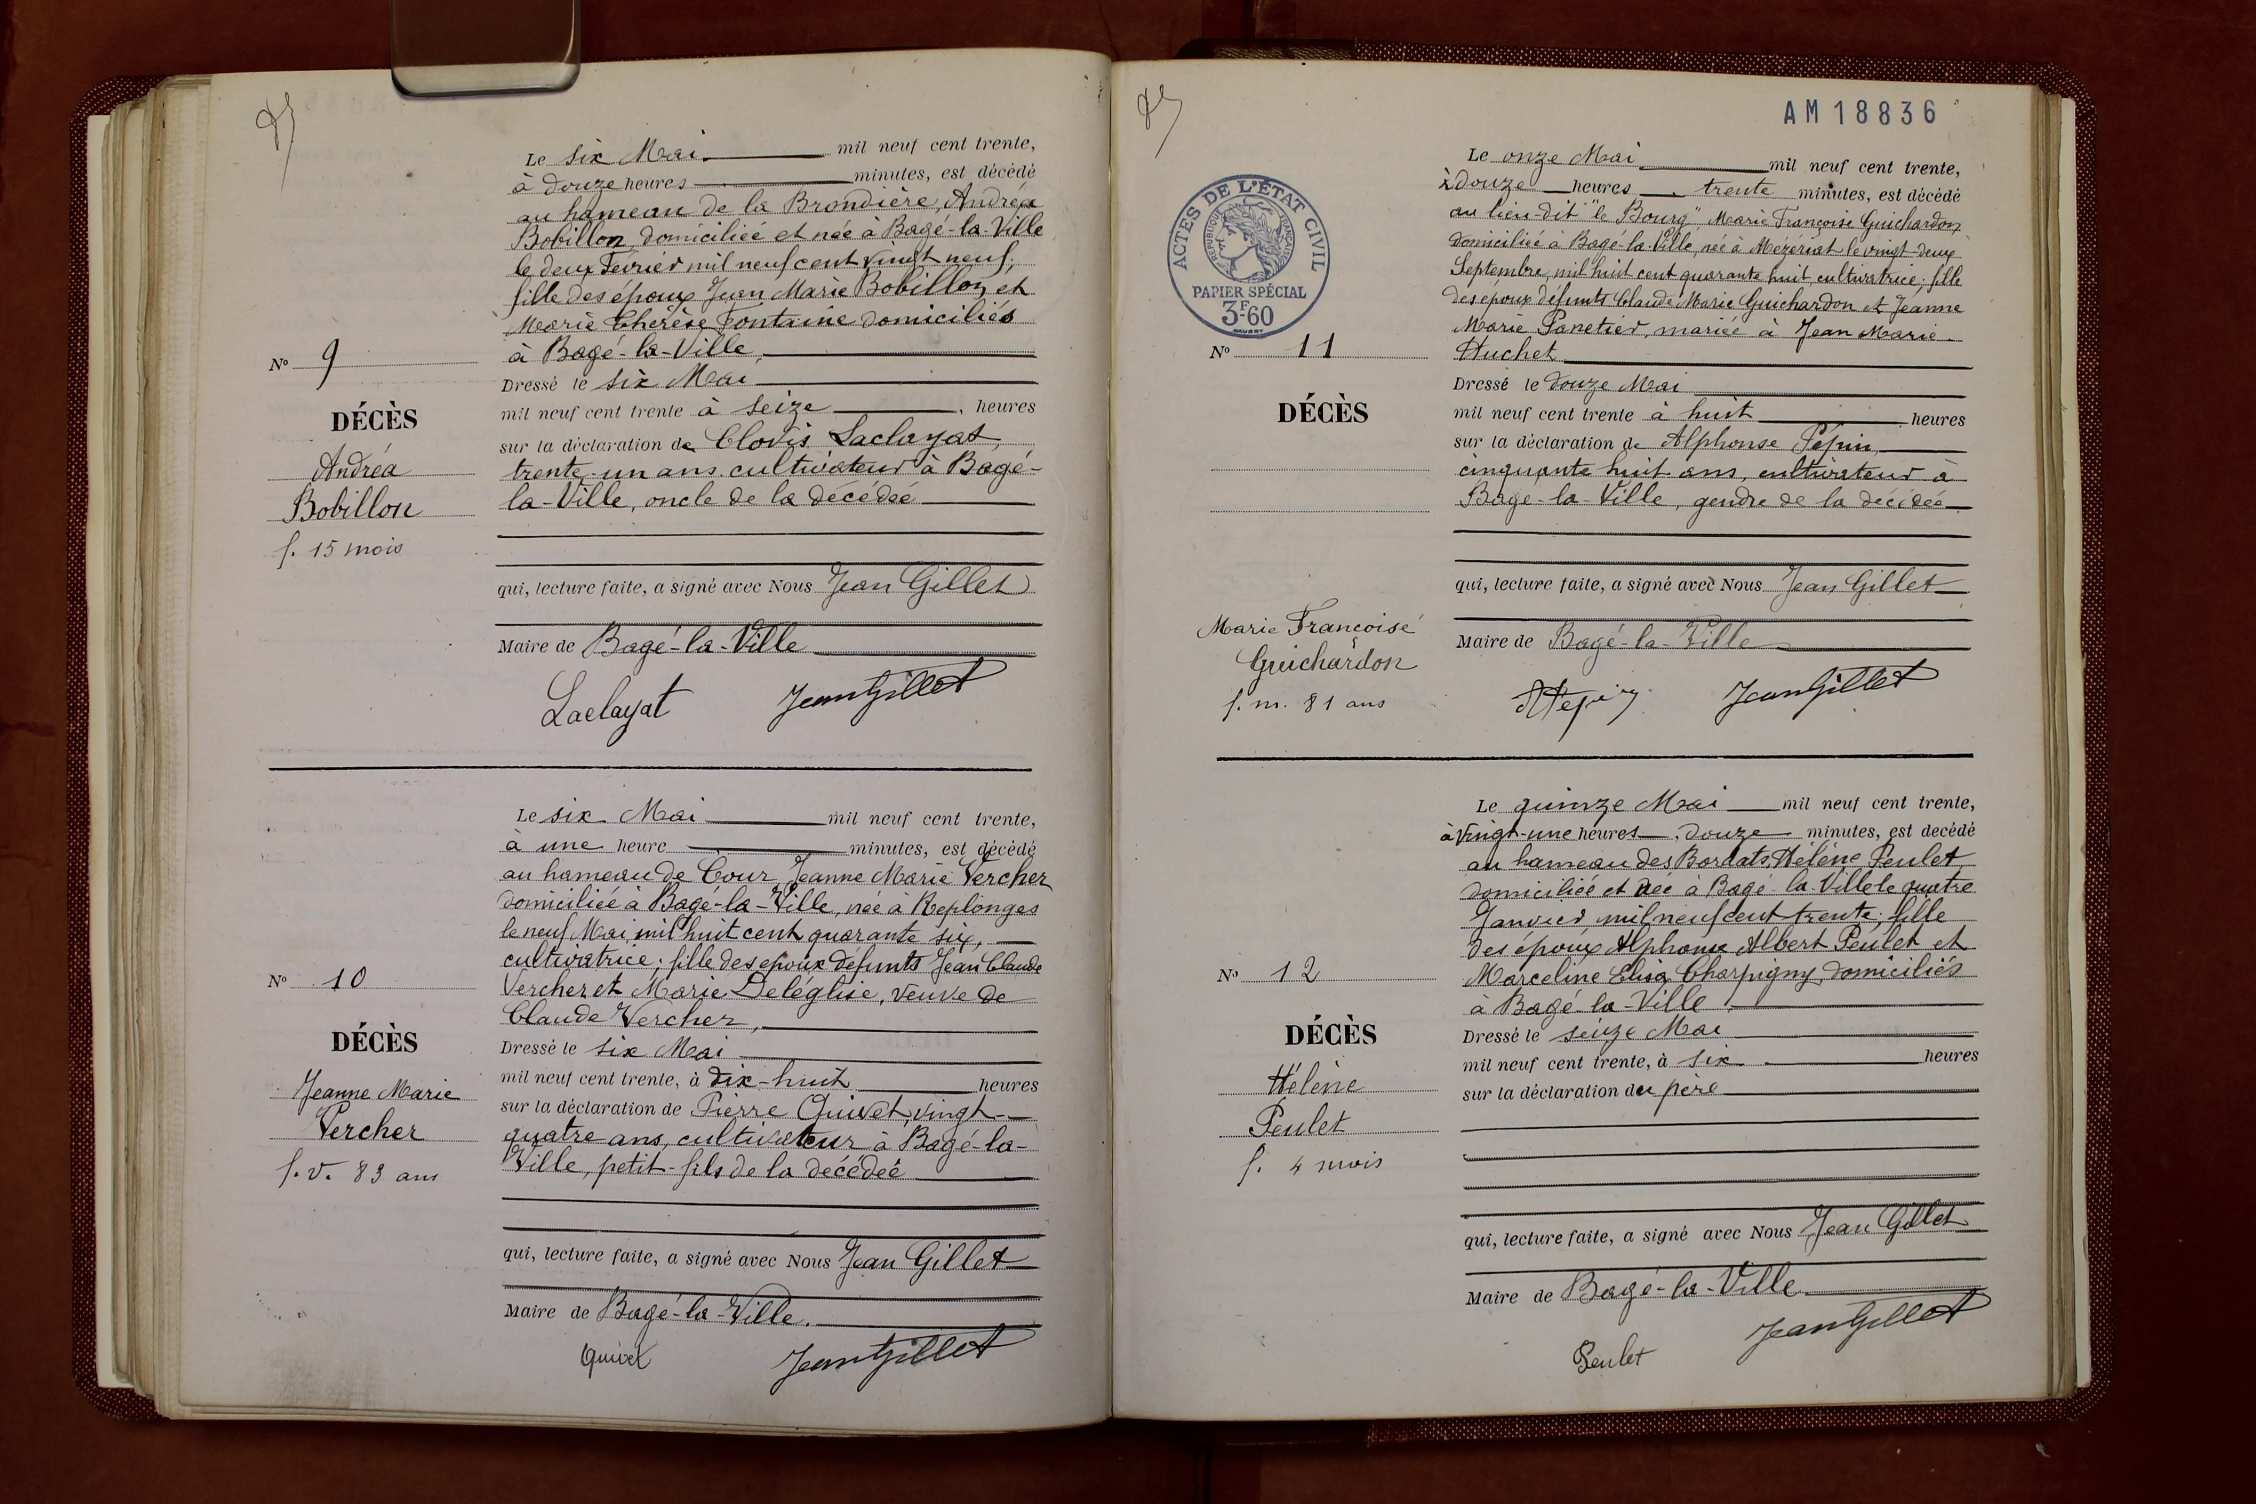 Le six Mai mil neuf cent trente,
à douze heures minutes, est décédé
au hameau de la Brondière, Andréa
Bobillon, domiciliée et née à Bagé-la-Ville
le deux Février mil neuf cent vingt neuf;
fille des époux Jean Marie Bobillon et
Marie Thérèse Fontaine domiciliés
à Bagé-la-Ville,
No 9
Dressé le six Mai
mil neuf cent trente à seize heures
DÉCÈS
sur la déclaration de Clovis Laclayat,
Andréa
trente-un ans cultivateur à Bagé-
Bobillon
la-Ville, oncle de la décédée
f. 15 mois
qui, lecture faite, a signé avec Nous Jean Gillet
Maire de Bagé-la-Ville
Laclayat JeanGillet
Le six Mai mil neuf cent trente,
à une heure minutes, est décédé
au hameau de Cour Jeanne Marie Vercher
domiciliée à Bagé-la-Ville, née à Replonges
le neuf Mai mil huit cent quarante six,
cultivatrice; fille des époux défunts Jean Claude
No 10
Vercher et Marie Deléglise, veuve de
Claude Vercher,
DÉCÈS
Dressé le six Mai
mil neuf cent trente, à dix-huit heures
Jeanne Marie
sur la déclaration de Pierre Quivet, vingt-
Vercher
quatre ans, cultivateur à Bagé-la-
f. v. 83 ans
Ville, petit-fils de la décédée
qui, lecture faite, a signé avec Nous Jean Gillet
Maire de Bagé-la-Ville.
Quivet JeanGillet
AM 18836
Le onze Mai mil neuf cent trente,
à douze heures trente minutes, est décédé
au lieu-dit "le Bourg", Marie Françoise Guichardon
domiciliée à Bagé-la-Ville, née à Mézériat le vingt-deux
Septembre, mil huit cent quarante huit, cultivatrice; fille
des époux défunts Claude Marie Guichardon et Jeanne
Marie Panetier, mariée à Jean Marie
Huchet
ACTES DE L'ÉTAT CIVIL
RÉPUBLIQUE FRANÇAISE
PAPIER SPÉCIAL
3F60
No 11
Dressé le douze Mai
DÉCÈS
mil neuf cent trente à huit heures
sur la déclaration de Alphonse Pépin,
cinquante huit ans, cultivateur à
Bagé-la-Ville, gendre de la décédée
qui, lecture faite, a signé avec Nous Jean Gillet
Marie Françoise
Maire de Bagé-la-Ville
Guichardon
f. m. 81 ans
JeanGillet
Le quinze Mai mil neuf cent trente,
à vingt-une heures douze minutes, est decédé
au hameau des Bordats, Hélène Peulet,
domiciliée et née à Bagé-la-Ville le quatre
Janvier mil neuf cent trente; fille
des époux Alphonse Albert Peulet et
No 12
Marceline Elisa Charpigny domiciliés
à Bagé-la-Ville
DÉCÈS
Dressé le seize Mai
mil neuf cent trente, à six heures
Hélène
sur la déclaration du père
Peulet
f. 4 mois
qui, lecture faite, a signé avec Nous Jean Gillet
Maire de Bagé-la-Ville
Peulet JeanGillet